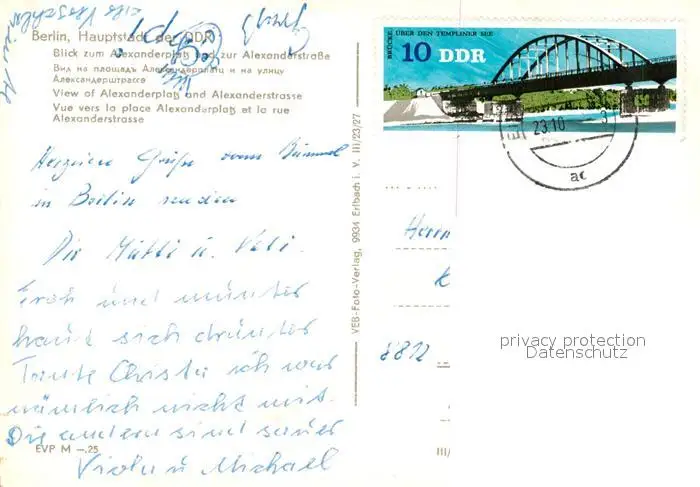 Berlin, Hauptstadt der DDR
Blick zum Alexanderplatz und zur Alexanderstraße
Вид на площадь Александерплац и на улицу
Александерштрассе
View of Alexanderplatz and Alexanderstrasse
Vue vers la place Alexanderplatz et la rue
Alexanderstrasse
Herzliche Grüße vom Bummel
in Berlin senden
Die Mutti u. Vati.
Froh und munter
haut sich drunter
Tante Christa ich war
nämlich nicht mit.
Die andern sind sauer
Viola u Michael
EVP M –.25
VEB-Foto-Verlag, 9934 Erlbach i. V. III/23/27
BRÜCKE ÜBER DEN TEMPLINER SEE
10 DDR
23.10
ac
Herrn
K
8812
privacy protection
Datenschutz
III/